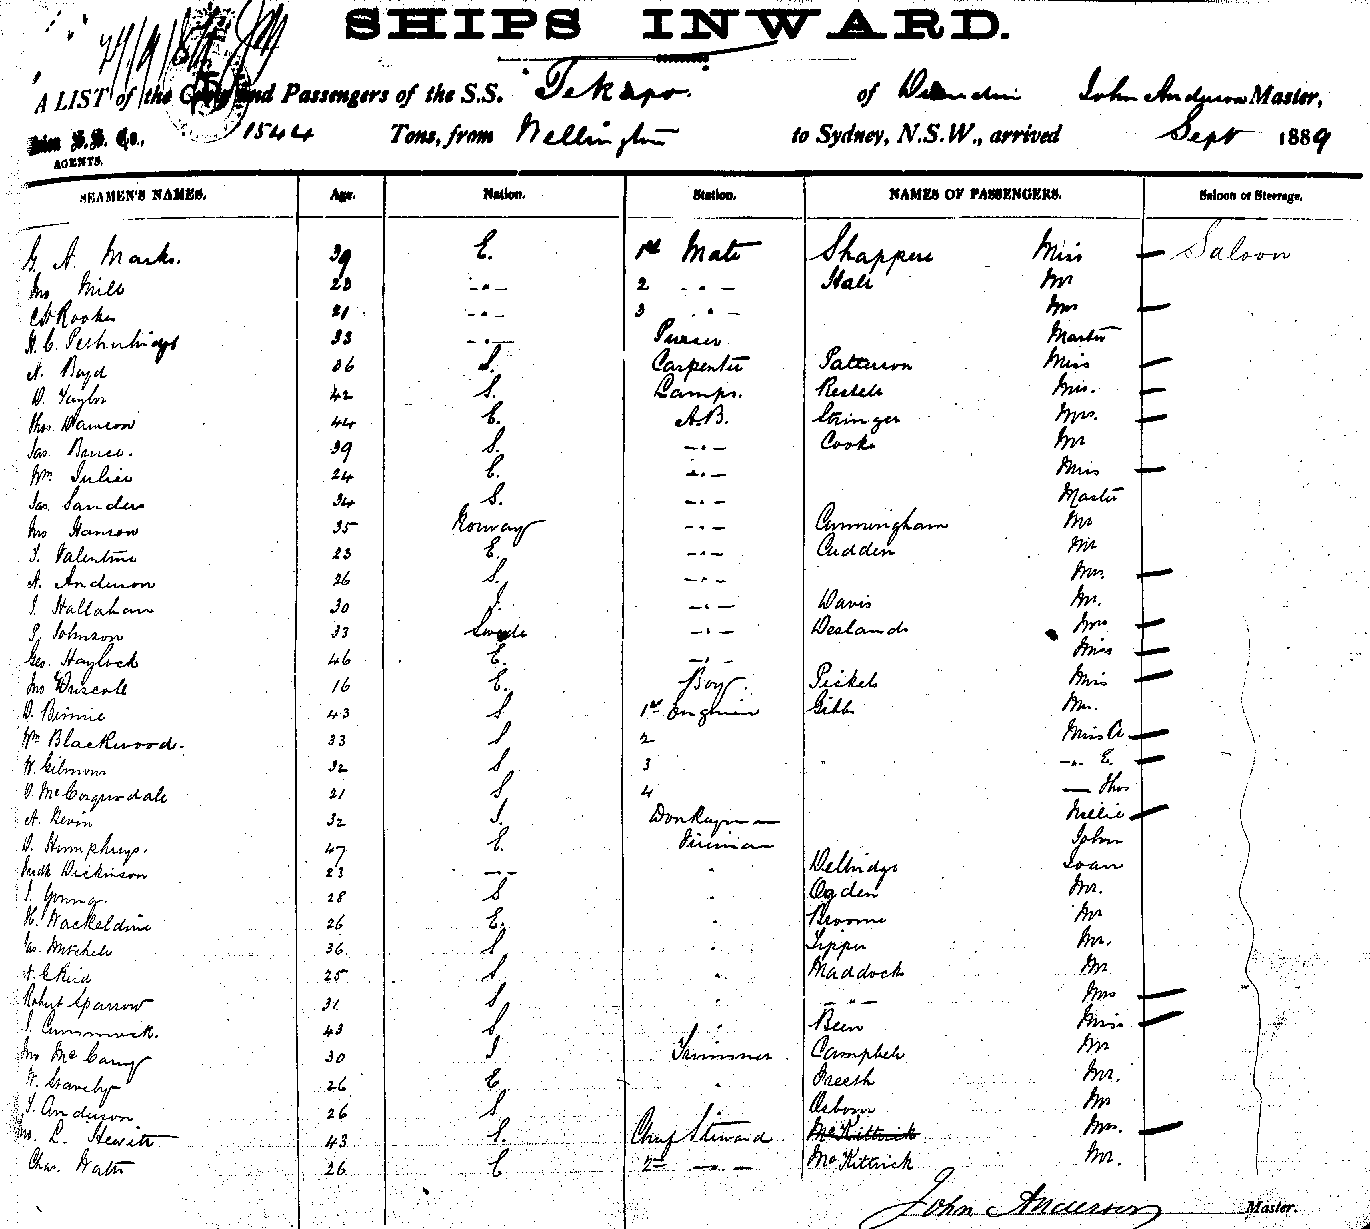 SHIPS INWARD.
A LIST of the Crew and Passengers of the S.S. Tekapo. of Dunedin John Anderson Master,
S. S. Co., 1544 Tons, from Wellington to Sydney, N.S.W., arrived Sept 1889
AGENTS.
SEAMEN'S NAMES. Age. Nation. Station. NAMES OF PASSENGERS. Saloon or Steerage.
G. A. Marks. 39 E. 1st Mate Miss — Saloon
Jno 23 -"- 2 -"- Hall Mr
21 -"- 3 -"- Mrs —
33 -"- Purser Master
A. Boyd 36 S. Carpenter Patterson Miss —
D. Taylor 42 S. Lamps. —
Thos Dawson 44 E. A.B. Stringer Mrs. —
Jas. Bruce. 39 S. -"- Cooke Mr
Wm. Julier 24 E. -"- Miss —
Jas. Sanders 34 S. -"- Master
Jno Hanson 35 Norway -"- Cunningham Mr
J. Valentine 23 E. -"- Cudden Mr
A. Anderson 26 S. -"- Mrs. —
J. Hallaham 30 I. -"- Davis Mr.
Johnson 33 Swede -"- Deslands Mrs —
Geo. Haylock 46 E. -"- Miss —
Jno Driscole 16 E. Boy. Pickels Miss —
D. Binnie 43 S 1st Engineer Gibb Mr.
Wm Blackwood. 33 S 2 Miss —
W. Gilmour 32 S 3 -"- E. —
D. McCorquodale 21 S 4 — Thos
A. Kevin 32 I. Donkeyman Nellie —
D. Humphrys. 47 E. Fireman John
Dickinson 23 -"- " Delbridge
J. Young. 28 S " Ogden Mr.
H. Wackeldine 26 E. " Broome Mr
Jas. Mitchell 36 S " Tipper Mr.
A. C Reid 25 S " Maddock Mr
Robert Sparrow 31 S " -"- Mrs —
J. Cummock. 43 S " Been Miss —
Jno 30 I Trimmer Campbell Mr
W. 26 E. " Freeth Mr.
J. Anderson 26 S Osborn Mr
L. Hewitt 43 E. Chief Steward McKittrick Mrs. —
Chas. Watts 26 E 2nd -"- McKittrick Mr.
John Anderson Master.